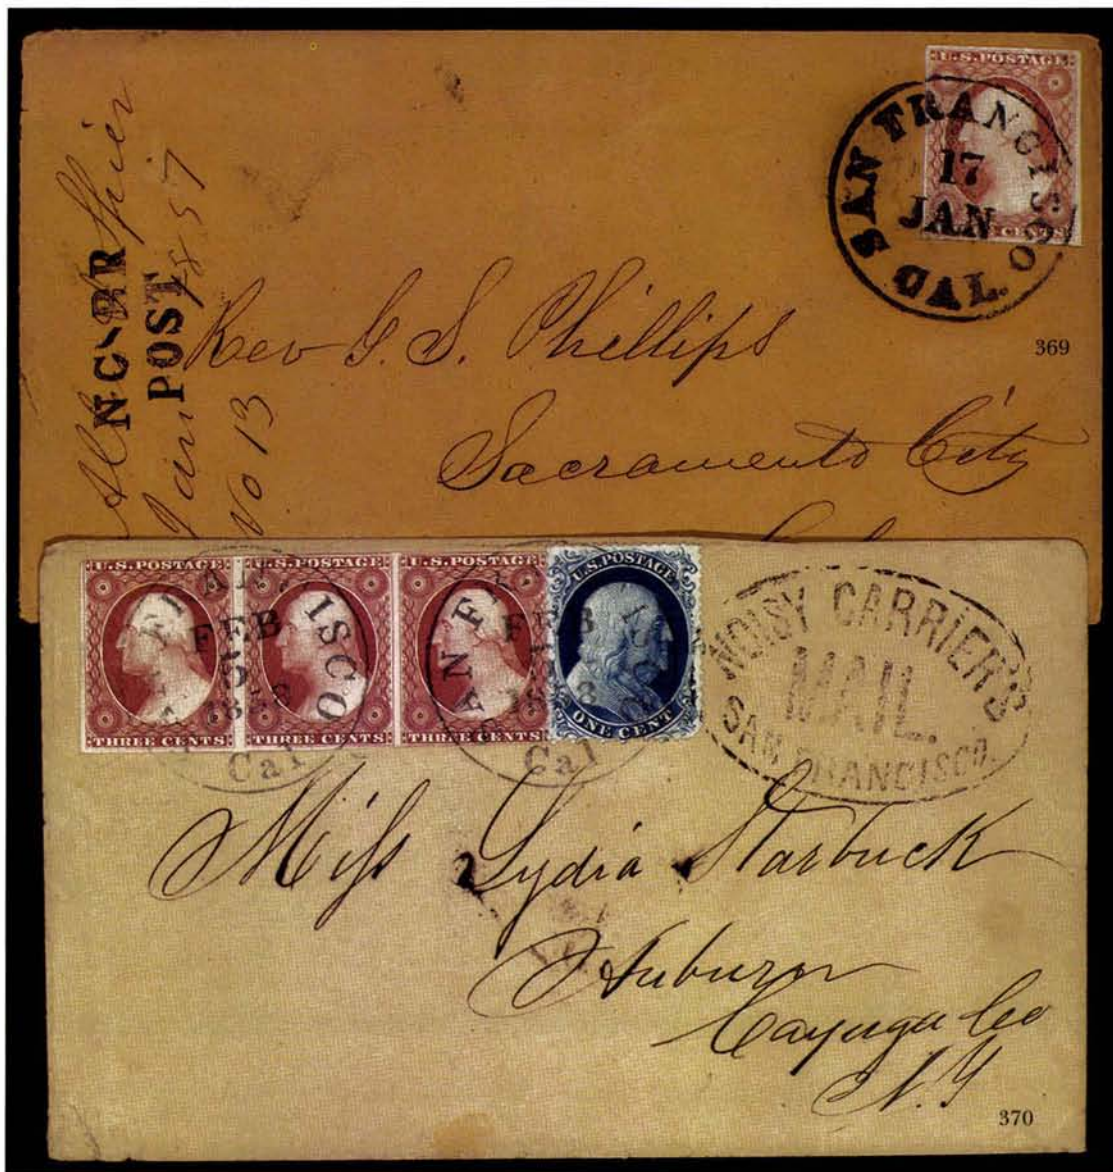 U.S. POSTAGE
CENTS
SAN FRANCISCO
17
JAN
CAL.
N-C-RR
POST
Jan 1857
No 13
Rev G. S. Phillips
Sacramento City
369
U.S. POSTAGE
THREE CENTS
U.S. POSTAGE
THREE CENTS
U.S. POSTAGE
THREE CENTS
U.S. POSTAGE
ONE CENT
FEB
Cal
SAN
FEB
Cal
NOISY CARRIER'S
MAIL.
SAN FRANCISCO.
Miss Lydia Starbuck
Auburn
Cayuga Co
N.Y
370